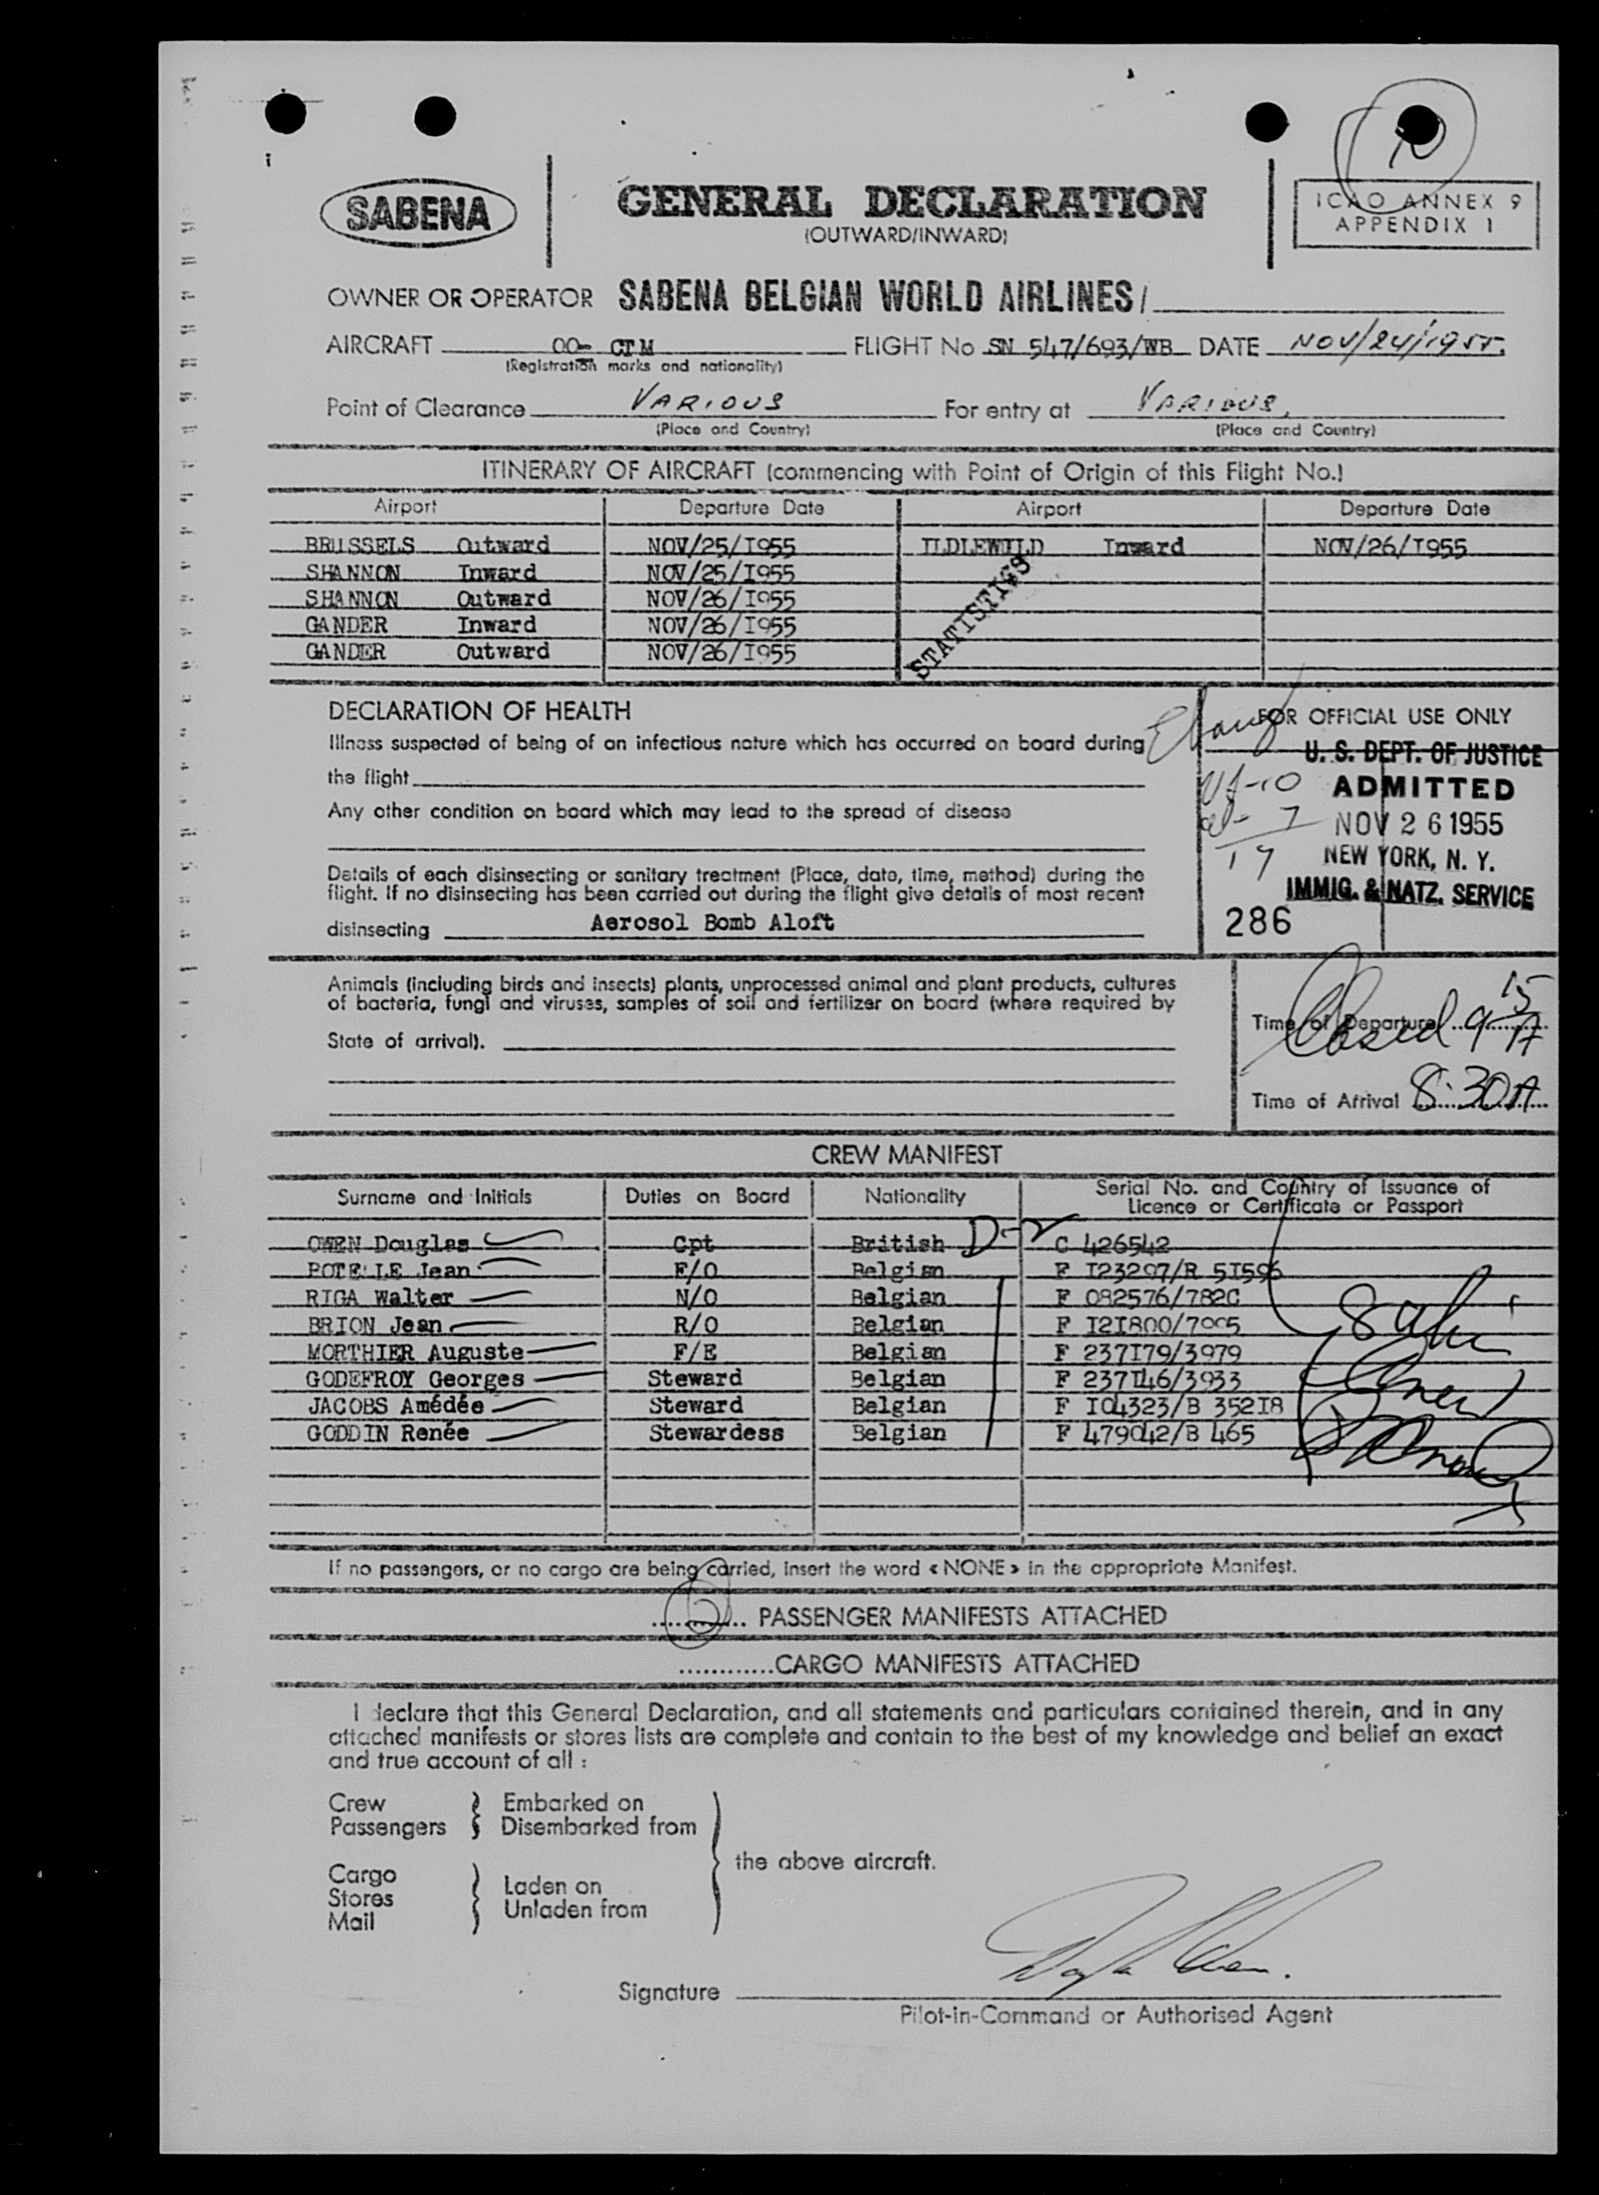 SABENA
GENERAL DECLARATION
(OUTWARD/INWARD)
ICAO ANNEX 9
APPENDIX 1
OWNER OR OPERATOR SABENA BELGIAN WORLD AIRLINES/
AIRCRAFT OO- CTM FLIGHT No SN 547/693/WB DATE NOV/24/1955.
(Registration marks and nationality)
Point of Clearance VARIOUS For entry at VARIOUS.
(Place and Country) (Place and Country)
ITINERARY OF AIRCRAFT (commencing with Point of Origin of this Flight No.)
Airport Departure Date Airport Departure Date
BRUSSELS Outward NOV/25/I955 IIDLEWILD Inward NOV/26/I955
SHANNON Inward NOV/25/I955
SHANNON Outward NOV/26/I955
GANDER Inward NOV/26/I955
GANDER Outward NOV/26/I955
STATISTICS
DECLARATION OF HEALTH
Illness suspected of being of an infectious nature which has occurred on board during
the flight
Any other condition on board which may lead to the spread of disease
Details of each disinsecting or sanitary treatment (Place, date, time, method) during the
flight. If no disinsecting has been carried out during the flight give details of most recent
disinsecting Aerosol Bomb Aloft
FOR OFFICIAL USE ONLY
U. S. DEPT. OF JUSTICE
ADMITTED
NOV 26 1955
NEW YORK, N. Y.
IMMIG. & NATZ. SERVICE
286
-10
7
17
Animals (including birds and insects) plants, unprocessed animal and plant products, cultures
of bacteria, fungi and viruses, samples of soil and fertilizer on board (where required by
State of arrival).
Time of Departure Closed 9 15 A
Time of Arrival 8:30A
CREW MANIFEST
Surname and Initials Duties on Board Nationality Serial No. and Country of Issuance of
Licence or Certificate or Passport
OWEN Douglas Cpt British D-2 C 426542
POTELLE Jean F/O Belgian F I23297/R 5I596
RIGA Walter N/O Belgian F 082576/782C
BRION Jean R/O Belgian F I2I800/7995
MORTHIER Auguste F/E Belgian F 237I79/3979
GODEFROY Georges Steward Belgian F 237I46/3933
JACOBS Amédée Steward Belgian F I04323/B 352I8
GODDIN Renée Stewardess Belgian F 479042/B 465
If no passengers, or no cargo are being carried, insert the word « NONE » in the appropriate Manifest.
PASSENGER MANIFESTS ATTACHED
CARGO MANIFESTS ATTACHED
I declare that this General Declaration, and all statements and particulars contained therein, and in any
attached manifests or stores lists are complete and contain to the best of my knowledge and belief an exact
and true account of all :
Crew Embarked on
Passengers Disembarked from
the above aircraft.
Cargo
Stores Laden on
Mail Unladen from
Signature
Pilot-in-Command or Authorised Agent